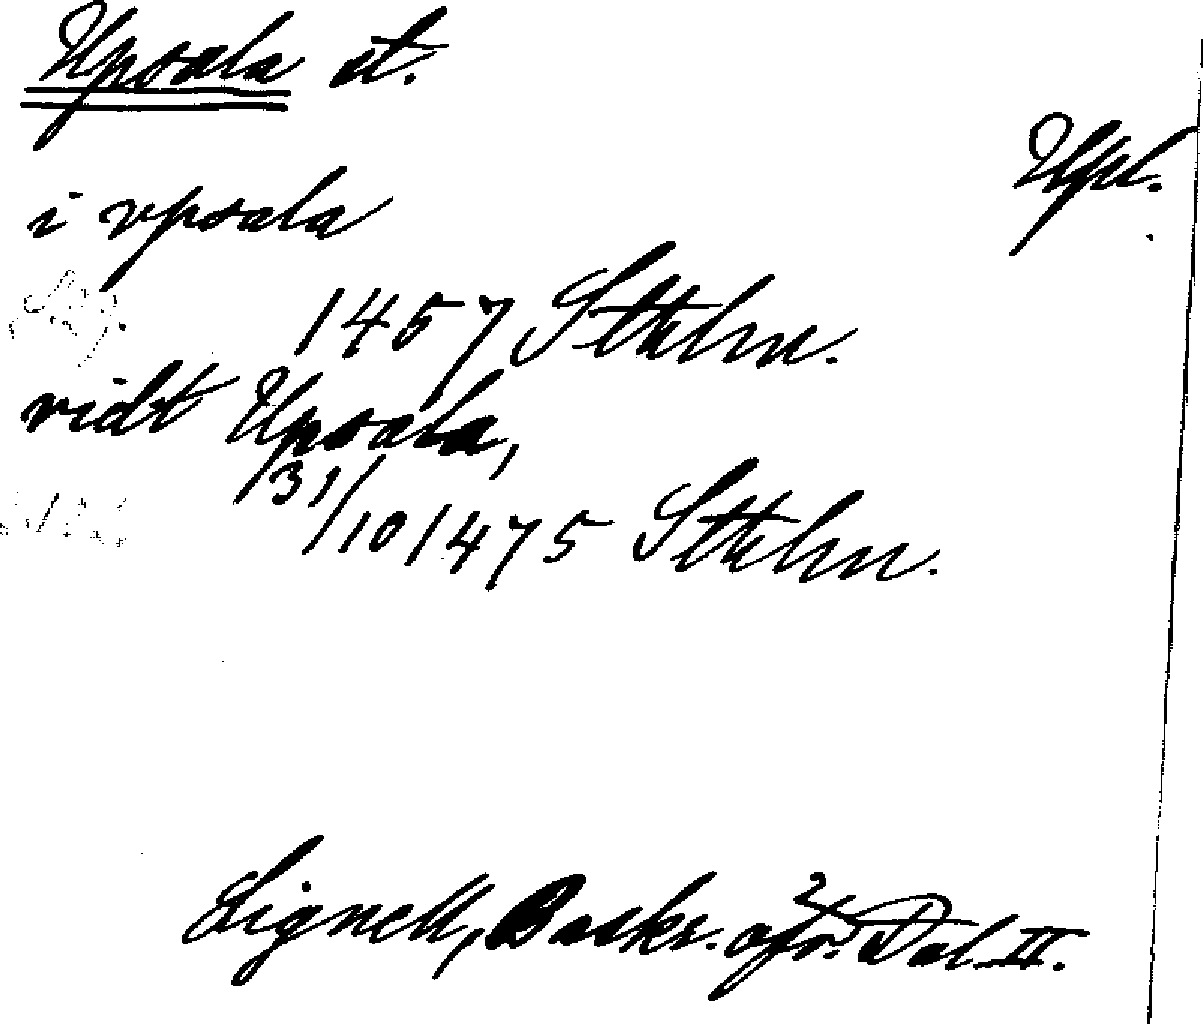 Upsala st.
Upl.
i vpsala
1457 Sthlm.
vidt Upsala,
31/10 1475 Sthlm.
Lignell, Beskr. öfv. Dal II.